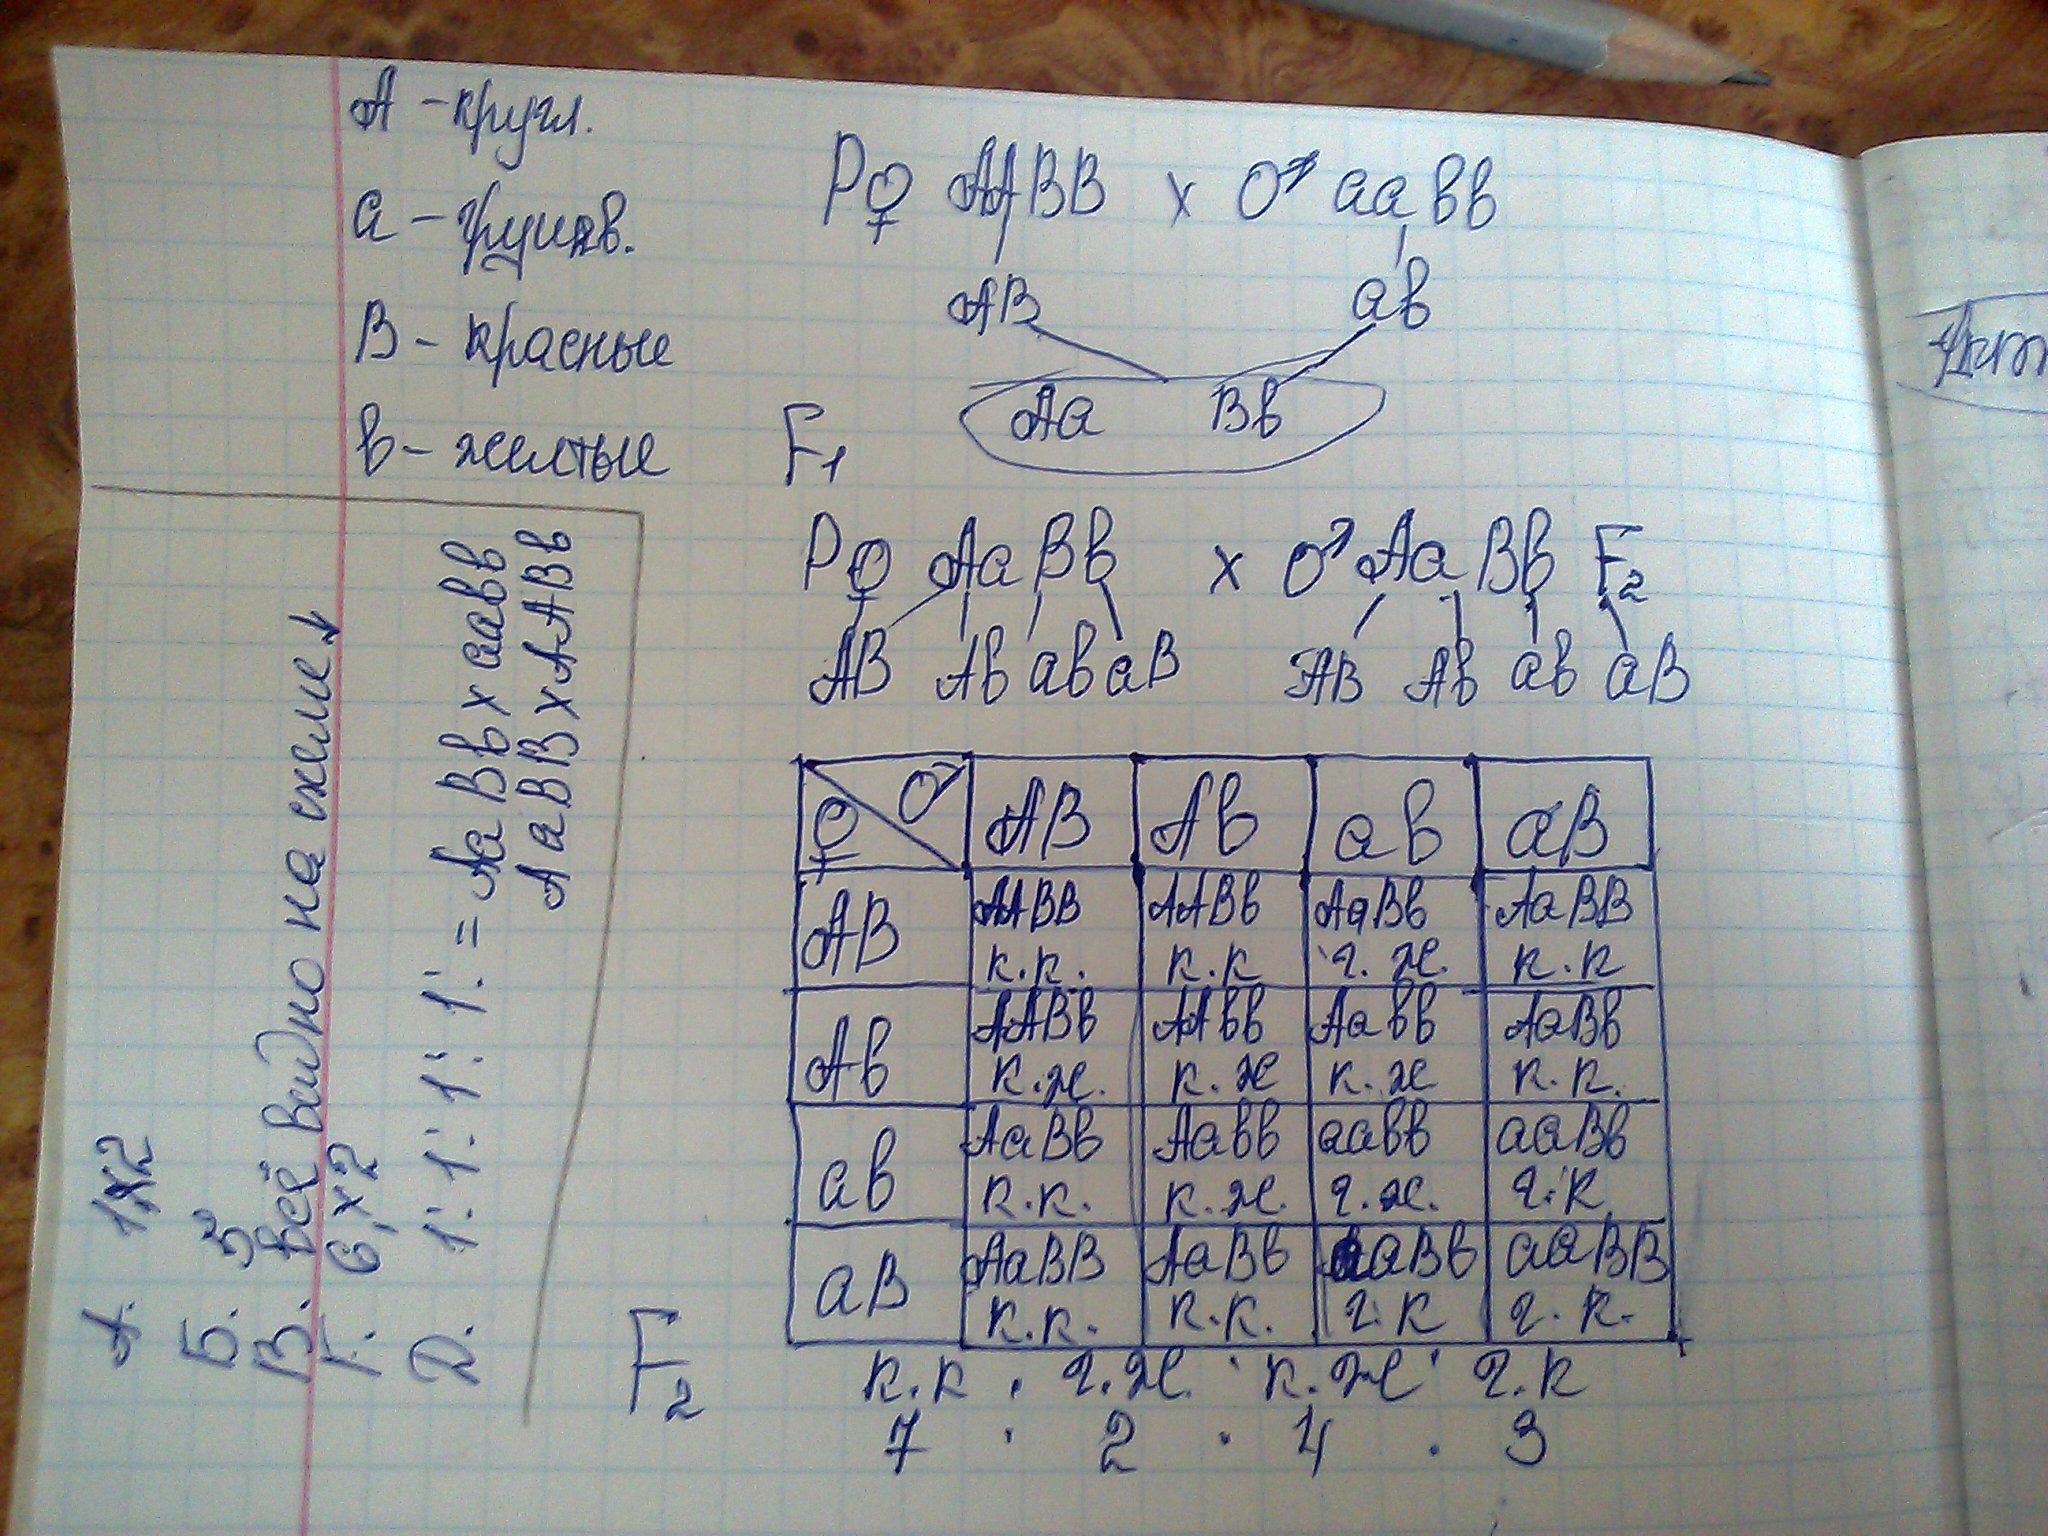 А – кругл.
а – грушев.
В – красные
в – желтые
Р♀ ААВВ х ♂ аавв
АВ ав
F1 Аа Вв
Р♀ АаВв х ♂ АаВв F2
АВ Ав ав аВ АВ Ав ав аВ
♀ ♂ АВ Ав ав аВ
АВ ААВВ ААВв АаВв АаВВ
к.к. к.к г.ж. к.к
Ав ААВв ААвв Аавв АаВв
к.ж. к.ж к.ж к.к.
ав АаВв Аавв аавв ааВв
к.к. к.ж. г.ж. г.к
аВ АаВВ АаВв ааВв ааВВ
к.к. к.к. г.к г.к.
F2 к.к : г.ж. : к.ж : г.к
7 : 2 : 4 : 3
А. 1х2
Б. 3
В. всё видно на схеме ↓
Г. 6, х2
Д. 1:1:1:1: = АаВв х аавв
АаВВ х ААВв